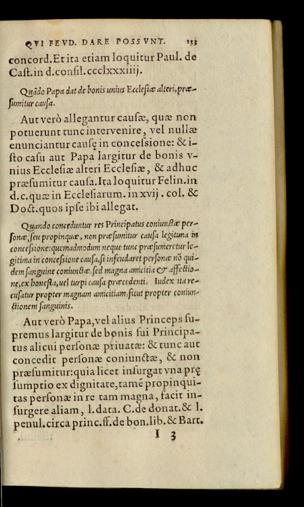 QVI FEVD. DARE POSSVNT. 133
concord. Et ita etiam loquitur Paul. de
Cast. in d. consil. ccclxxxiiij.
Quãdo Papa dat de bonis unius Ecclesiæ alteri, præ-
sumitur causa.
Aut verò allegantur causæ, quæ non
potuerunt tunc intervenire, vel nullæ
enunciantur causę in concessione: & i-
sto casu aut Papa largitur de bonis v-
nius Ecclesiæ alteri Ecclesiæ, & adhuc
præsumitur causa. Ita loquitur Felin. in
d. c. quæ in Ecclesiarum. in xvij. col. &
Doct. quos ipse ibi allegat.
Quando conceduntur res Principatus coniunctæ per-
sonæ, seu propinquæ, non præsumitur causa legitima in
concessione: quemadmodum neque tunc præsumeretur le-
gitima in concessione causa, si infeudaret personæ nõ qui-
dem sanguine coniunctæ. sed magna amicitia & affectio-
ne, ex honesta, vel turpi causa præcedenti. Iudex ita re-
cusatur propter magnam amicitiam sicut propter coniun-
ctionem sanguinis.
Aut verò Papa, vel alius Princeps su-
premus largitur de bonis sui Principa-
tus alicui personæ priuatæ: & tunc aut
concedit personæ coniunctæ, & non
præsumitur: quia licet insurgat vna prę
sumptio ex dignitate, tamẽ propinqui-
tas personæ in re tam magna, facit in-
surgere aliam, l. data. C. de donat. & l.
penul. circa princ. ff. de bon. lib. & Bart.
I 3